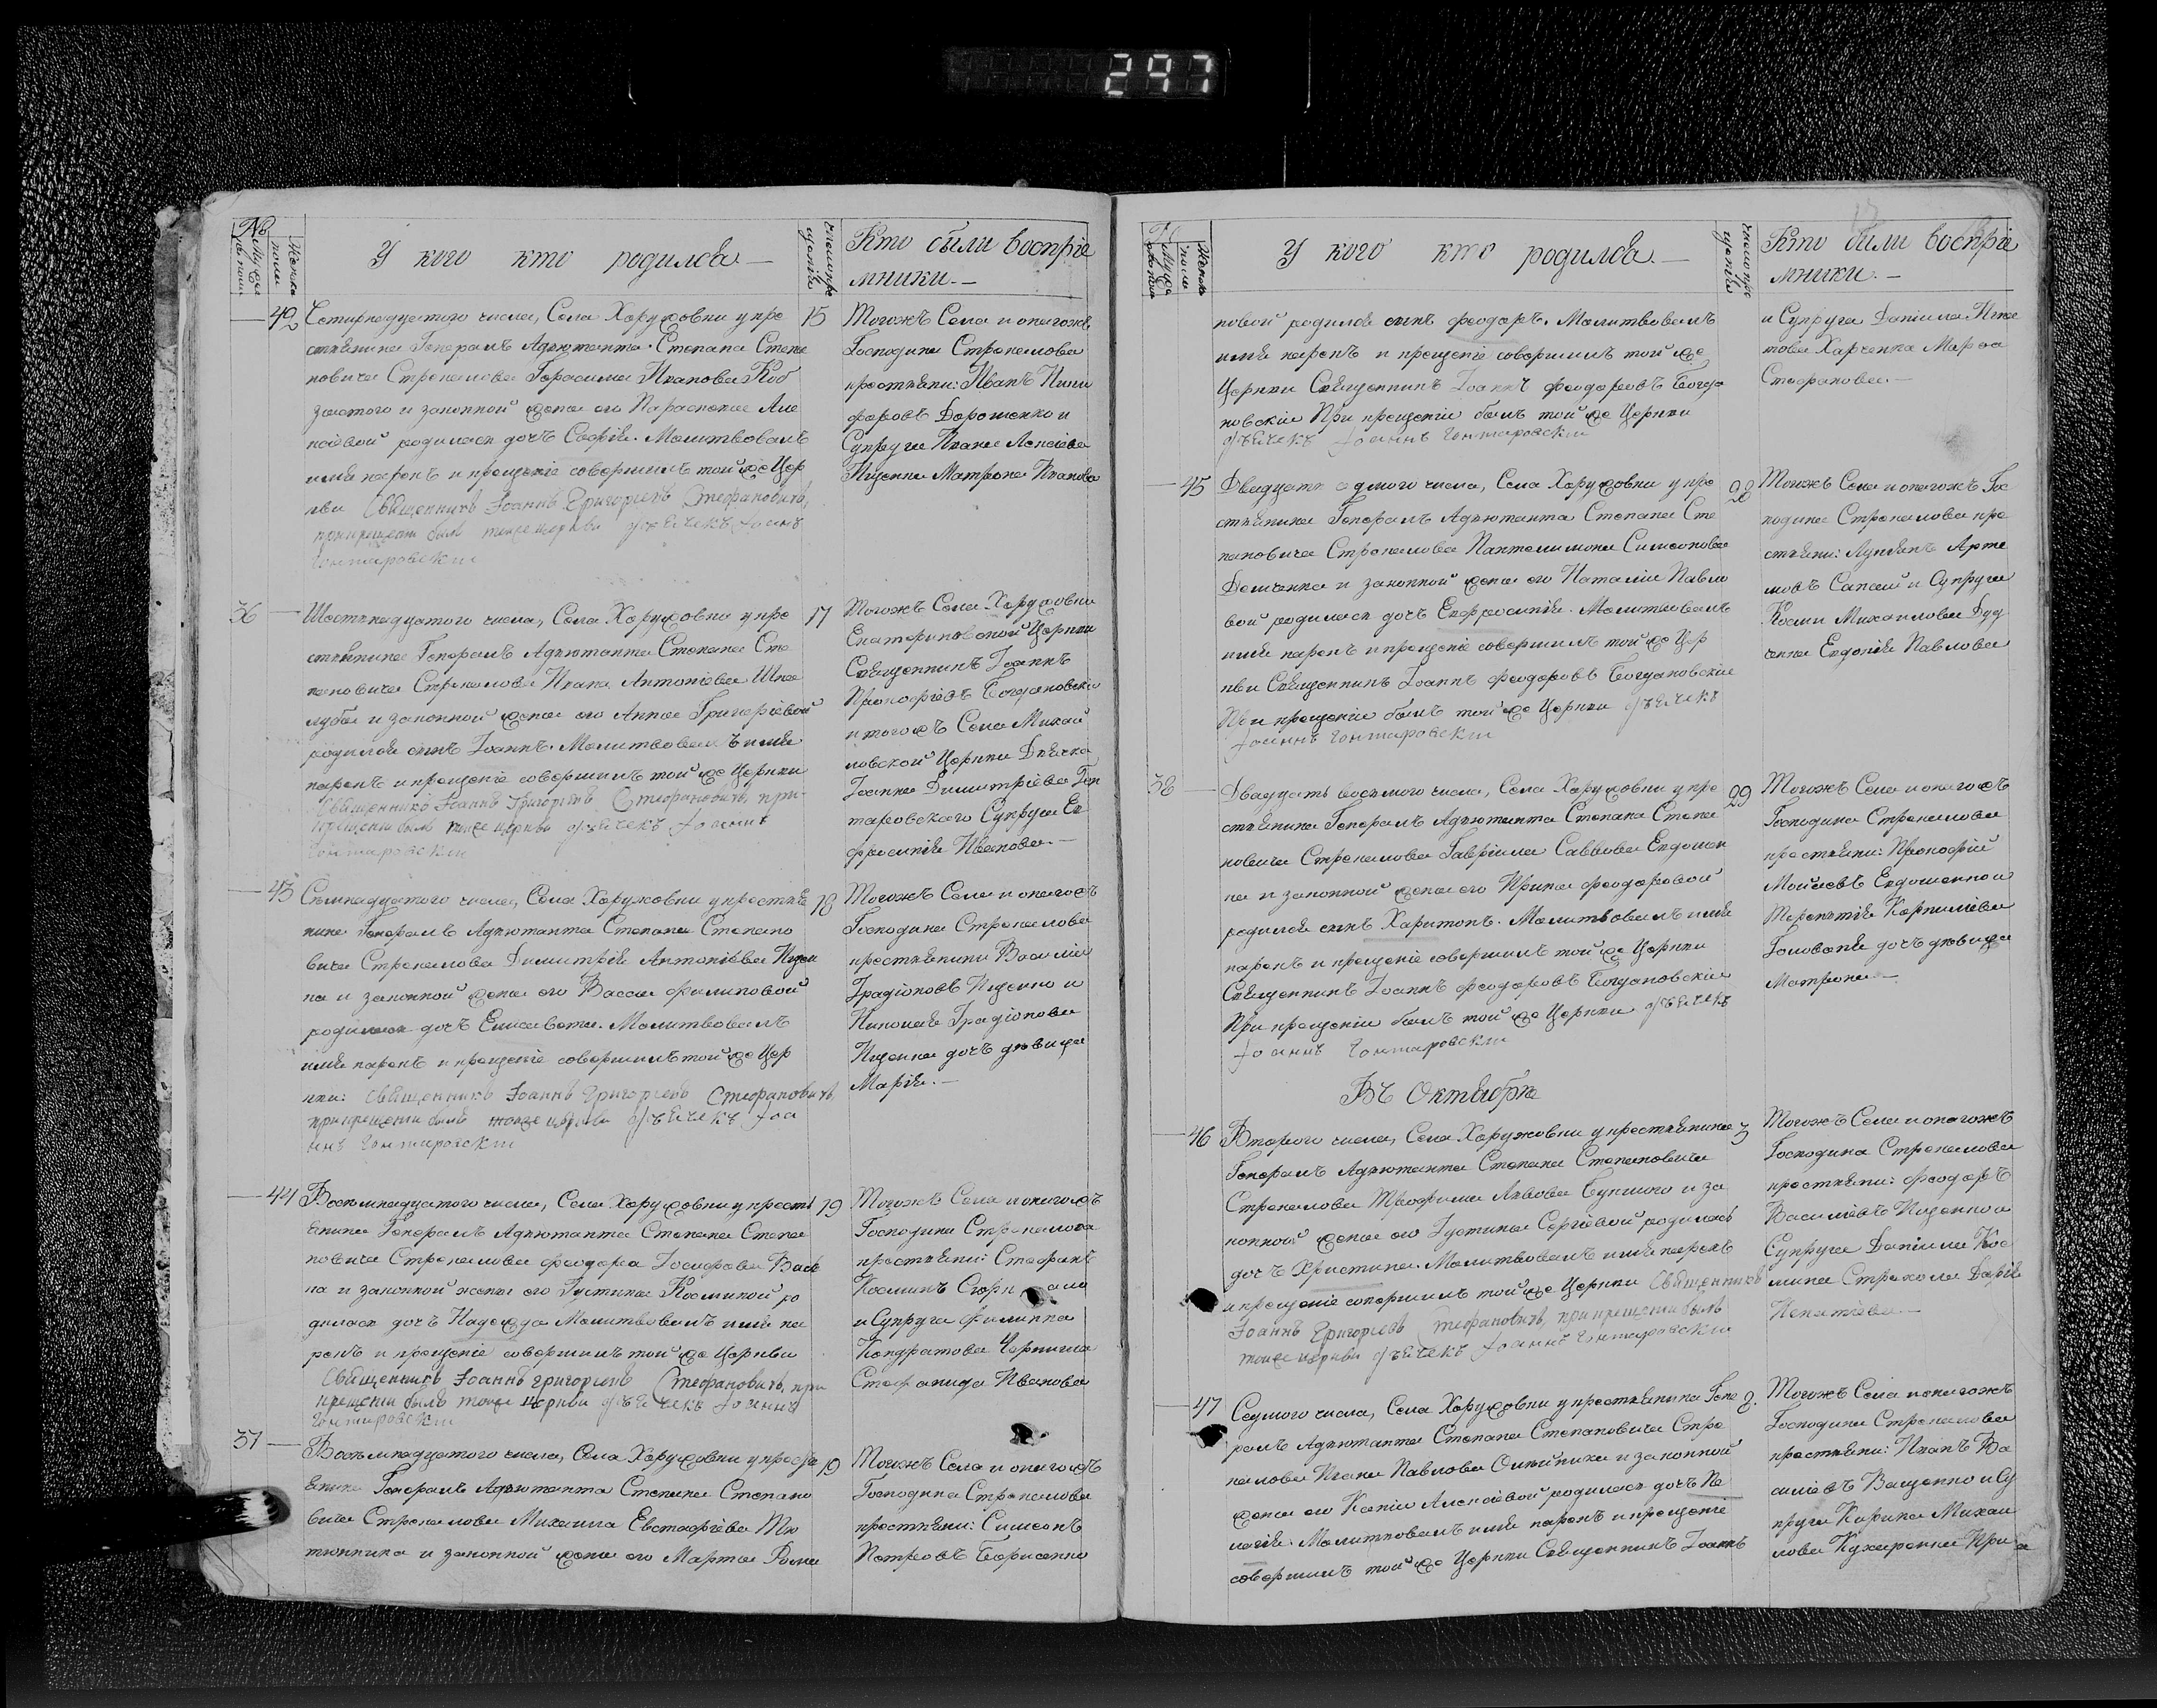 297
№
Мужеска пола
Женска пола
У кого кто родился —
число крещенія
Кто были воспріе
мники. —
42
Четирнадцатого числа, Села Харуковки у кре
стянина Генералъ Адьютанта Степана Степа
новича Стрекалова Герасима Иванова Коб
затого и законной жены его Параскевы Але
ксіевой родилася дочъ Софія. Молитвовалъ
имя нарекъ и крещеніе совершилъ той же Цер
кви Священникъ Іоаннъ Григоріевъ Стефановичъ,
прикрещеніи былъ тойже церкви дьячекъ Іоаннъ
Гонтаровскій
15
Тогожъ Села и онагожъ
Господина Стрекалова
крестяни: Иванъ Ники
форовъ Дорошенко и
Супруга Ивана Алексіева
Ищенка Матрона Иванова
36
Шестнадцатого числа, Села Харуковки у кре
стянина Генералъ Адьютанта Степана Сте
пановича Стрекалова Ивана Антоніева Шка
лубы и законной жены его Анны Григоріевой
родился сынъ Іоаннъ. Молитвовалъ имя
нарекъ и крещеніе совершилъ той же Церкви
Священникъ Іоаннъ Григоріевъ Стефановичъ, при
крещеніи былъ тойже церкви дьячекъ Іоаннъ
Гонтаровскій
17
Тогожъ Села Харуковки
Екатериновской Церкви
Священникъ Іоаннъ
Прокофіевъ Богдановскій
и тогожъ Села Михай
ловской Церкви Дьячка
Іоанна Димитріева Гон
таровского Супруга Ев
фросинія Иванова. —
43
Семнадцатого числа, Села Харуковки у крестяни
нина Генералъ Адьютанта Степана Степано
вича Стрекалова Димитрія Антоніева Ищен
ка и законной жены его Вассы Филиповой
родилася дочъ Елисавета. Молитвовалъ
имя нарекъ и крещеніе совершилъ той же Цер
кви: Священникъ Іоаннъ Григоріевъ Стефановичъ,
прикрещеніи былъ тойже церкви дьячекъ Іоа
ннъ Гонтаровскій
18
Тогожъ Села и онагожъ
Господина Стрекалова
крестянини Василій
Градіоновъ Ищенко и
Николая Градіонова
Ищенка дочъ девица
Марія. —
44
Восемнадцатого числа, Села Харуковки у кресть
янина Генералъ Адьютанта Степана Степа
новича Стрекалова Феодора Іосифова Вась
ка и законной жены его Іустины Косминой ро
дилася дочъ Надежда Молитвовалъ имя на
рекъ и крещеніе совершилъ той же Церкви
Священникъ Іоаннъ Григоріевъ Стефановичъ, при
крещеніи былъ тойже церкви дьячекъ Іоаннъ
Гонтаровскій
19
Тогожъ Села и онагожъ
Господина Стрекалова
крестяни: Стефанъ
Косминъ
и Супруга Филиппа
Кондратова Черниша
Стефанида Иванова
37
Восемнадцатого числа, Села Харуковки у кресть
янина Генералъ Адьютанта Степана Степано
вича Стрекалова Михаила Евстафіева Тю
тюнника и законной жены его Марты Рома
19
Тогожъ Села и онагожъ
Господина Стрекалова
крестяни: Симеонъ
Петровъ Борисенко
№
Мужеска пола
Женска пола
У кого кто родился. —
число крещенія
Кто били воспріе
мники. —
новой родился сынъ Феодоръ. Молитвовалъ
имя нарекъ и крещеніе совершилъ той же
Церкви Священникъ Іоаннъ Феодоровъ Богда
новскій При крещеніи былъ той же Церкви
дьячекъ Іоаннъ Гонтаровскій
и Супруга Даніила Игна
това Харченка Марфа
Стефанова. —
45
Двадцать седмого числа, Села Харуковки у кре
стянина Генералъ Адьютанта Степана Сте
пановича Стрекалова Пантелимона Симеонова
Демченка и законной жены его Наталіи Павло
вой родилася дочъ Евфросинія. Молитвовалъ
имя нарекъ и крещеніе совершилъ той же Цер
кви Священникъ Іоаннъ Феодоровъ Богдановскій
При крещеніи былъ той же Церкви дьячекъ
Іоаннъ Гонтаровскій
28
Тогожъ Села и онагожъ Гос
подина Стрекалова кре
стяни: Лукянъ Арте
мовъ Сапай и Супруга
Космы Михаилова Дуд
ченка Евдокія Павлова
38
Двадцать восьмого числа, Села Харуковки у кре
стянина Генералъ Адьютанта Степана Степа
новича Стрекалова Гавріила Саввова Евдошен
ка и законной жены его Ирины Феодоровой
родился сынъ Харитонъ. Молитвовалъ имя
нарекъ и крещеніе совершилъ той же Церкви
Священникъ Іоаннъ Феодоровъ Богдановскій
При крещеніи былъ той же Церкви дьячекъ
Іоаннъ Гонтаровскій
29
Тогожъ Села и онагожъ
Господина Стрекалова
крестяни: Прокофій
Мойсеевъ Евдошенко и
Терентія Корнилієва
Головатя дочъ девица
Матрона —
Въ Октябре
46
Второго числа, Села Харуковки у крестянина
Генералъ Адьютанта Степана Степановича
Стрекалова Трофима Львова Буцкого и за
конной жены его Іустины Сергіевой родилась
дочъ Христина. Молитвовалъ имя нарекъ
и крещеніе совершилъ той же Церкви Священникъ
Іоаннъ Григоріевъ Стефановичъ, прикрещеніи былъ
тойже церкви дьячекъ Іоаннъ Гонтаровскій
3
Тогожъ Села и онагожъ
Господина Стрекалова
крестяни: Феодоръ
Василіевъ Ищенко и
Супруга Даніила Кос
мина Стрекоза Дарія
Игнатіева. —
47
Седмого числа, Села Харуковки у крестянина Гене
ралъ Адьютанта Степана Степановича Стре
калова Ивана Павлова Олійника и законной
жены его Ксеніи Алексіевой родилася дочъ Пе
лагія. Молитвовалъ имя нарекъ и крещеніе
совершилъ той же Церкви Священникъ Іоаннъ
8.
Тогожъ Села и онагожъ
Господина Стрекалова
крестяни: Иванъ Ва
силіевъ Ващенко и Су
пруга Карпа Михаи
лова Кухаренка Ири